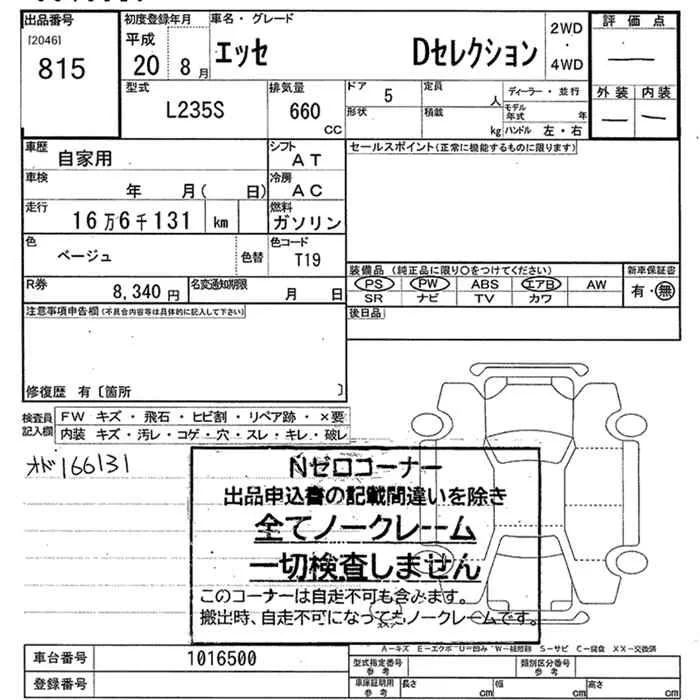 出品番号 初度登録年月 車名・グレード 2WD 評価点
[2046] 平成 エッセ Dセレクション ・ ―
815 20 8月 4WD
型式 排気量 ドア 5 定員 人 ディーラー・並行 外装 内装
L235S 660 cc 形状 積載 kg モデル年式 年 ― ―
ハンドル 左・右
車歴 自家用 シフト AT セールスポイント(正常に機能するものに限ります)
車検 年 月( 日) 冷房 AC
走行 16万6千131 km 燃料 ガソリン
色 ベージュ 色替 色コード T19
装備品(純正品に限り○をつけてください) 新車保証書
R券 8,340円 名変通知期限 月 日 PS PW ABS エアB AW 有・無
SR ナビ TV カワ
注意事項申告欄(不具合内容等は具体的に記入して下さい) 後日品
修復歴 有〔箇所 〕
検査員記入欄 FW キズ・飛石・ヒビ割・リペア跡・×要
内装 キズ・汚レ・コゲ・穴・スレ・キレ・破レ
オド166131
Nゼロコーナー
出品申込書の記載間違いを除き
全てノークレーム
一切検査しません
このコーナーは自走不可も含みます。
搬出時、自走不可になってもノークレームです。
A-キズ E-エクボ U-凹み W-補修跡 S-サビ C-腐食 XX-交換済
車台番号 1016500 型式指定番号 参考 類別区分番号 参考
登録番号 車庫証明用 参考 長さ cm 幅 cm 高さ cm